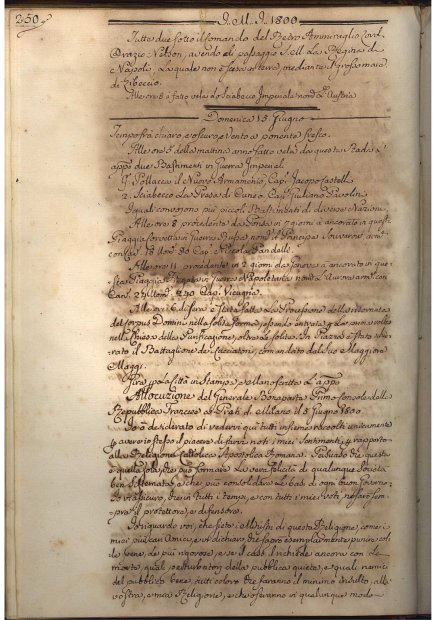 250.
I. M. I. 1800
Tutte due sotto il comando del Retro Ammiraglio Lord
Orazio Nelson, avendo al passaggio S. M. La Regina di
Napoli, La quale non è scesa a terra mediante il grosso mare
di Libeccio.
Alle ore 8 è fatto vela lo Sciabecco Imperiale nom.
Domenica 15 Giugno
Tempo frà chiaro, e oscuro, e Vento a ponente fresco.
Alle ore 5 della mattina anno fatto vela da questa Rada
app. due Bastimenti in Guerra Imperiali
1. Pollacca il Nuovo Armamento, Cap. Jacopo Castelli
2. Sciabecco La Presa di Cuneo, Cap. Giuliano Pavolini
I quali convojono più piccoli Bastimenti di diverse Nazioni
Alle ore 8 procedente da in giorni è ancorato in questa
Spiaggia Corvetta in Guerra Russa nom. il Principe Souvarow
con 18 90 Cap. Nicola
Alle ore 11 procedente in 2 giorni da Genova è ancorato in que-
sta Spiaggia Fregata in Guerra Napoletana nom. L'Aurora arm. con
Can. 240 Cap.
Alle ore 6 di sera è stata fatta La Processione della ottomata
del Corpus Domini nella solita forma, essendo
nella Chiesa della Purificazione, oltre Le solite. In Piazza è stato
rato il Battaglione de Cacciatori, comandato dal suo Maggiore
Maggi.
Gira per la Città in Stampa, e Manoscritta La app.
Allocuzione del Generale Bonaparte Primo Console della
Repubblica Francese ai Preti di Milano il 5 Giugno 1800.
Io ò desiderato di vedervi quì tutti insieme raccolti unitamente
per avere io stesso il piacere di farvi noti i miei sentimenti, per rapporto
alla Religione Cattolica Apostolica Romana. Persuaso che questa
è quella sola, che può formare La vera felicità di qualunque Società
ben sistemata, e che può consolidare Le basi di ogni buon Governo
Vi assicuro, che in tutti i tempi, e con tutti i miei voti ne sarò sem-
pre il protettore, e difensore.
Io riguardo voi, che siete i Ministri di questa Religione, come i
miei più cari Amici, e vi dichiaro che saprò esemplarmente punire col-
le pene, le più rigorose, e se il caso lo richiede ancora con la
morte, quali perturbatori della pubblica quiete, e quali nemici
del pubblico bene, tutti coloro che faranno il minimo insulto alla
vostra, e mia Religione, e che oseranno in qualunque modo